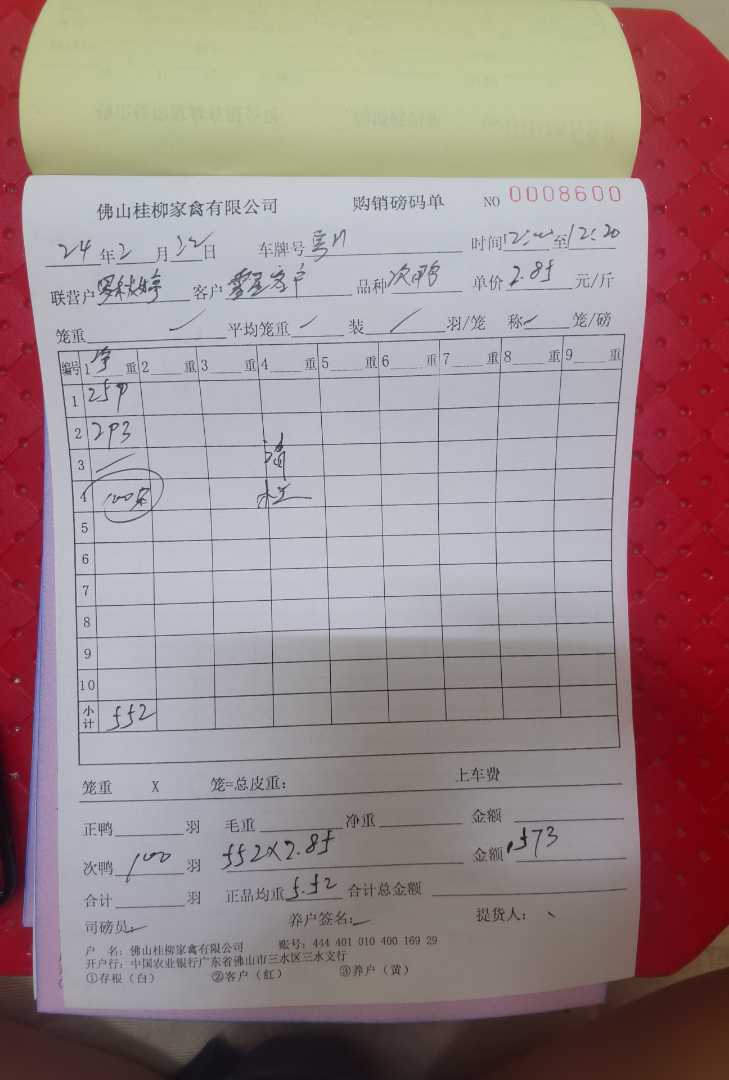 佛山桂柳家禽有限公司 购销磅码单 NO 0008600
24年2月22日 车牌号 时间12:00至12:20
联营户 客户 品种次鸭 单价2.85元/斤
笼重 平均笼重 装 羽/笼 称 笼/磅
编号 1净重 2 重 3 重 4 重 5 重 6 重 7 重 8 重 9 重
1 259
2 293
3
4 100只
5
6
7
8
9
10
小计 552
笼重 X 笼=总皮重： 上车费
正鸭 羽 毛重 净重 金额
次鸭100羽 552×2.85 金额1573
合计 羽 正品均重5.52 合计总金额
司磅员： 养户签名： 提货人：
户 名：佛山桂柳家禽有限公司 账号：444 401 010 400 169 29
开户行：中国农业银行广东省佛山市三水区三水支行
①存根（白） ②客户（红） ③养户（黄）